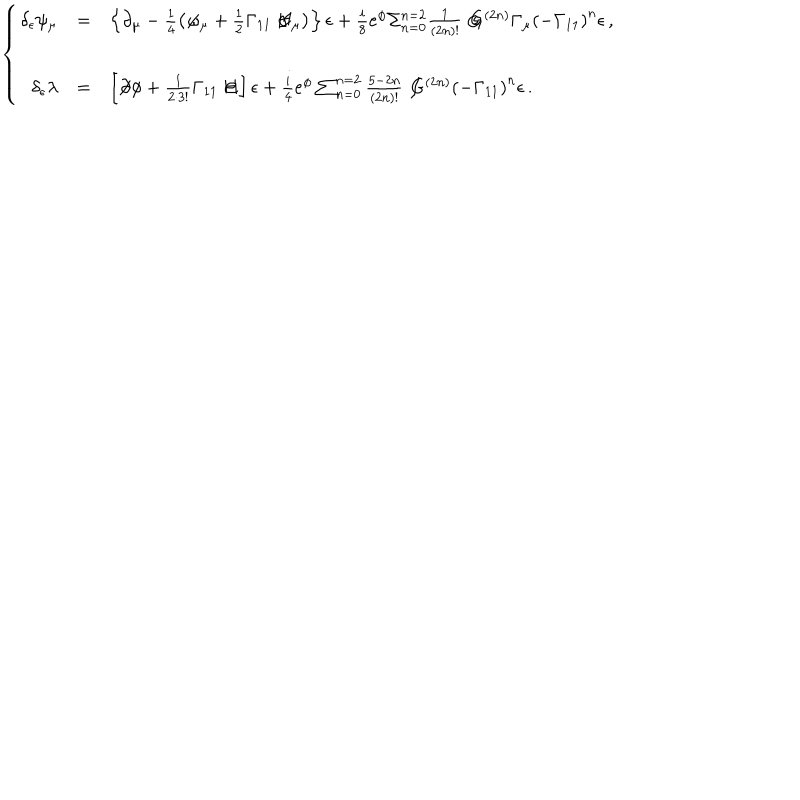 \left\{ \begin{array}{rcl} \delta_{\epsilon}\psi_{\mu} & = & \left\{ \partial_{\mu} - \frac{1}{4} \left( \not\!\omega_{\mu} + \frac{1}{2} \Gamma_{11} \not\!\! H_{\mu} \right) \right\} \epsilon + \frac{i}{8} e^{\phi} \Sigma_{n=0}^{n=2} \frac{1}{(2n)!} \not\! G^{(2n)} \Gamma_{\mu} (-\Gamma_{11})^{n} \epsilon \, ,
\delta_{\epsilon}\lambda & = & \left[ \not\!\partial \phi + \frac{1}{2 \cdot 3!} \Gamma_{11} \not\!\! H \right] \epsilon + \frac{i}{4} e^{\phi} \sum_{n=0}^{n=2} \frac{5-2n}{(2n)!} \not\! G^{(2n)} (-\Gamma_{11})^{n} \epsilon \, . \end{array} \right.